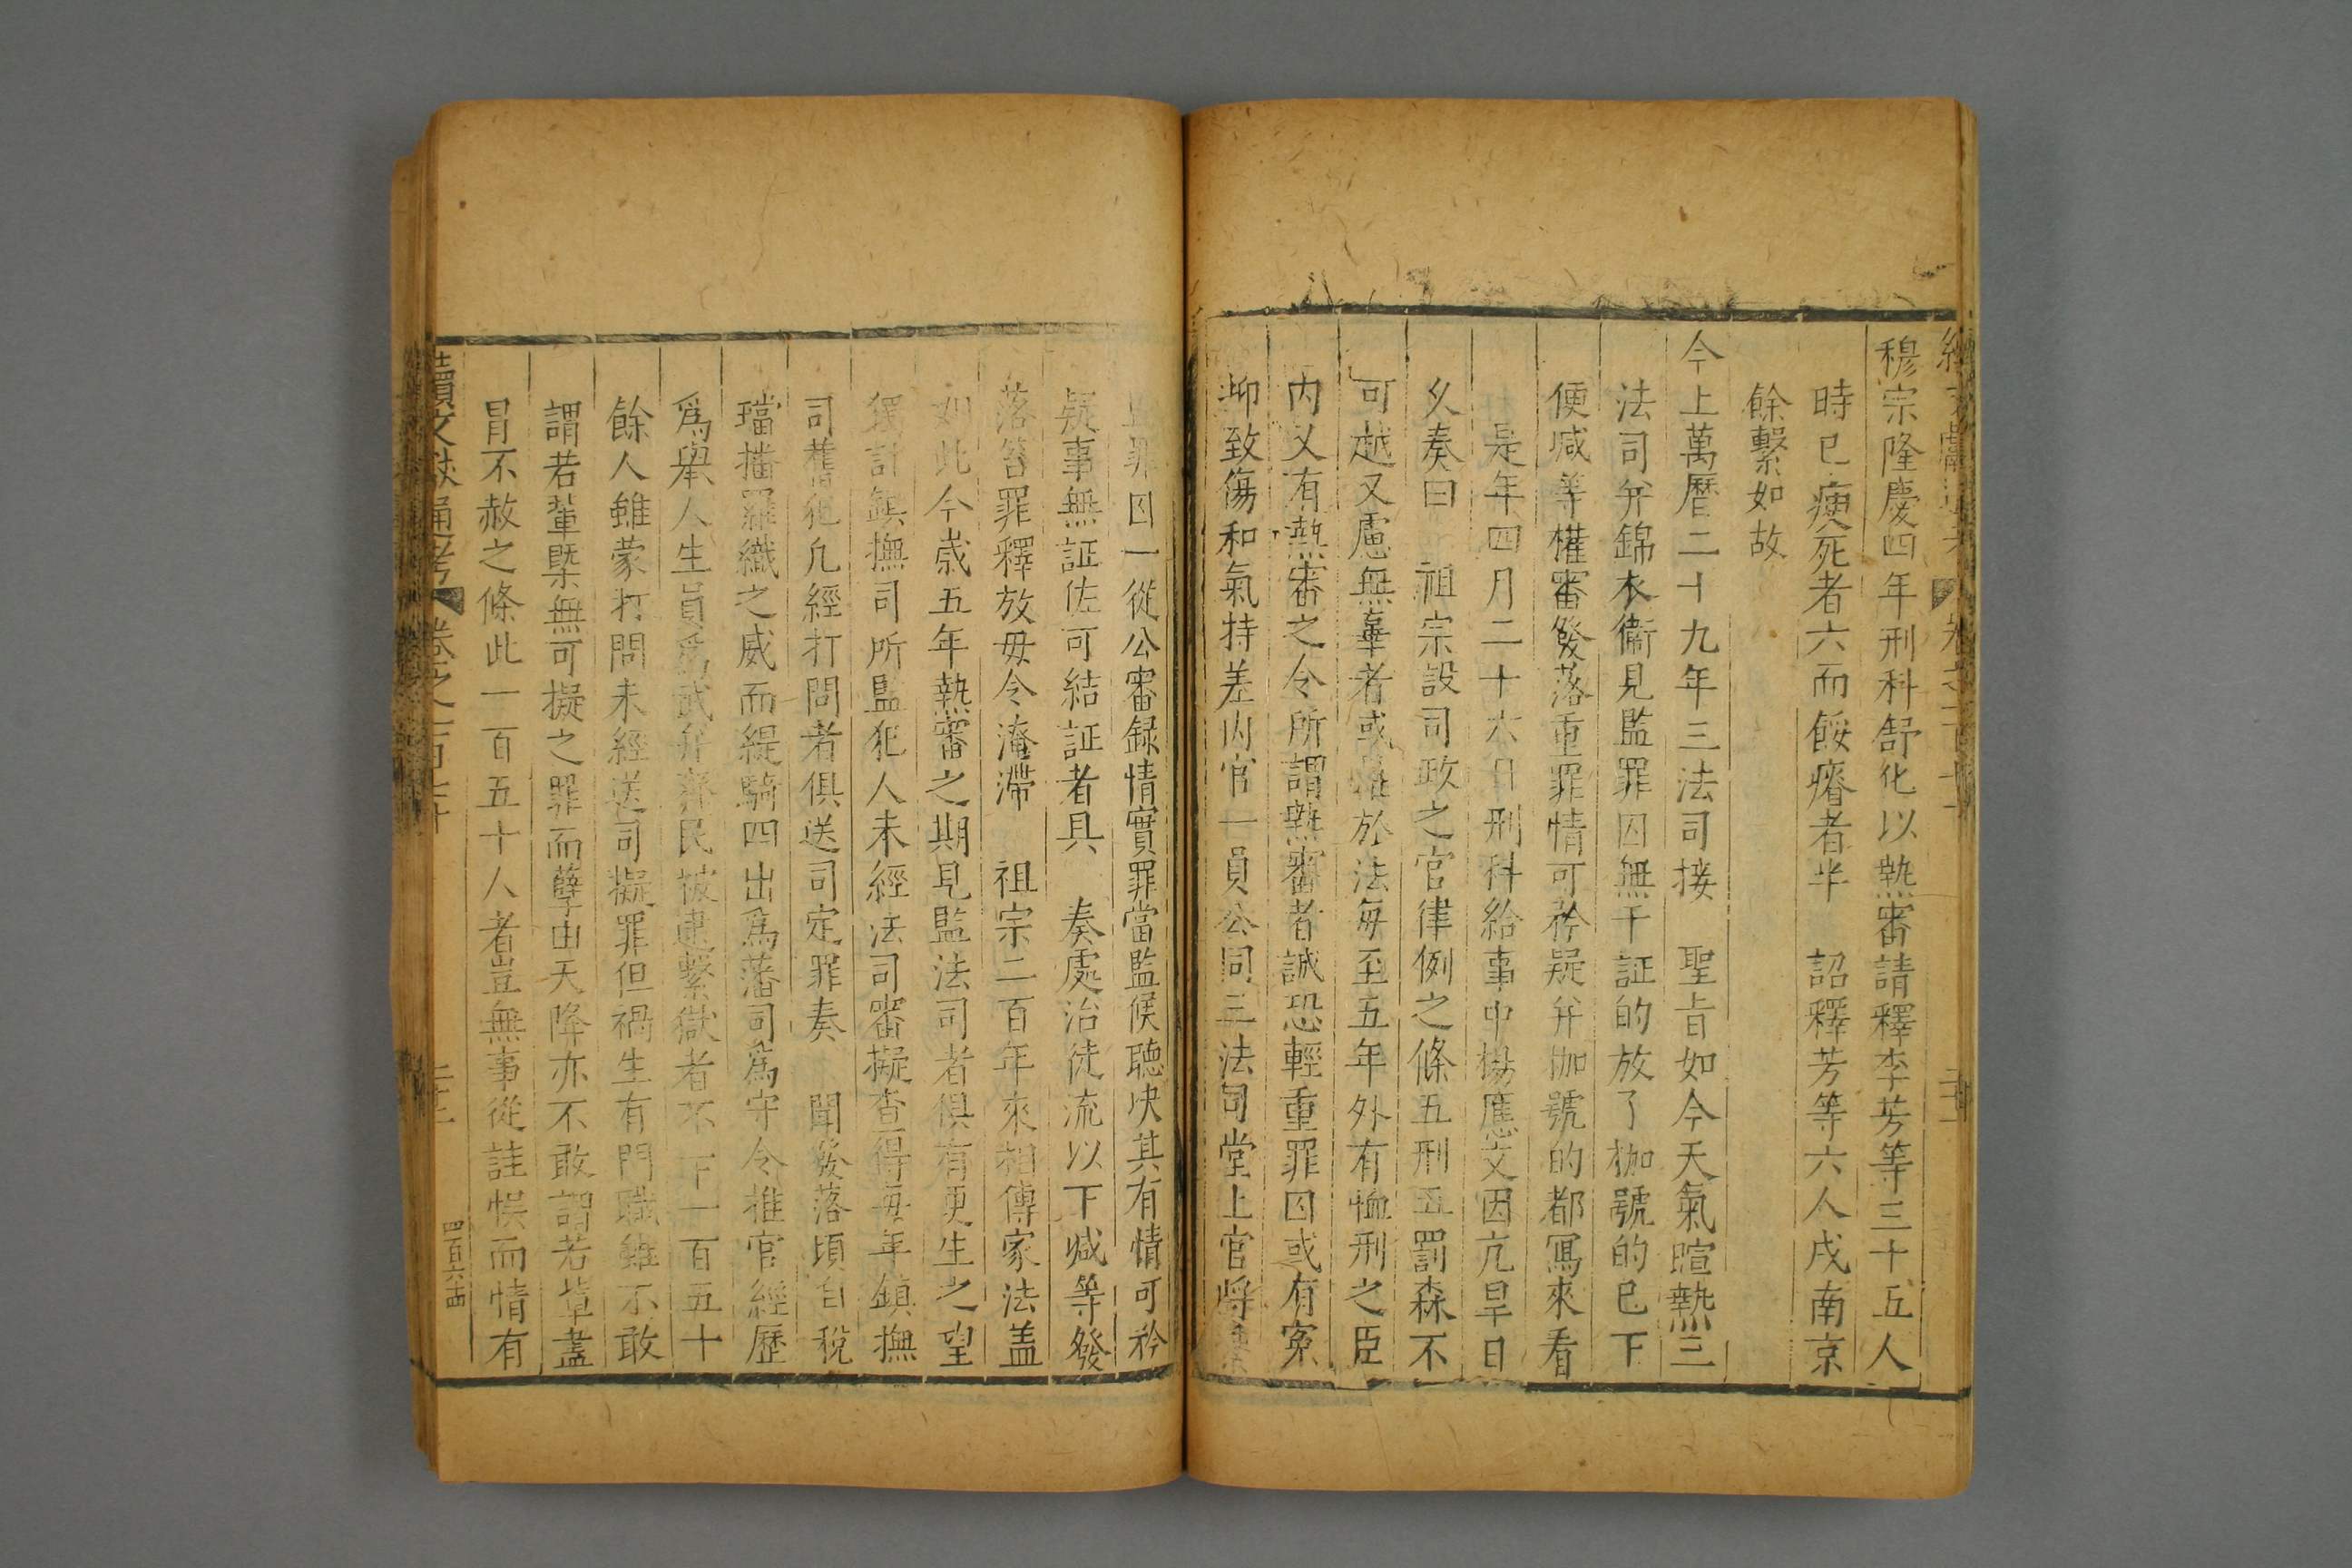 穆宗隆慶四年刑科舒化以熱審請釋李芳等三十五人
時已瘐死者六而餒瘠者半 詔釋芳等六人戍南京
餘繫如故
今上萬曆二十九年三法司接 聖旨如今天氣暄熱三
法司并錦衣衛見監罪囚無干証的放了枷號的已下
便减等櫂審發落重罪情可矜疑并枷號的都冩來看
是年四月二十六日刑科給事中楊應文因亢旱日
乆奏曰 祖宗設司政之官律例之條五刑五罰森不
可越又慮無辜者或罹於法每至五年外有恤刑之臣
内又有熱審之令所謂熱審者誠恐輕重罪囚或有寃
抑致傷和氣持差内官一員公同三法司堂上官將
罪囚一從公審録情實罪當監候聴决其有情可矜
疑事無証佐可結証者具 奏處治徒流以下减等發
落笞罪釋放毋令淹滯 祖宗二百年來相傳家法盖
如此今嵗五年熱審之期見監法司者俱有更生之望
獨計鎮撫司所監犯人未經法司審擬查得每年鎮撫
司舊犯凢經打問者俱送司定罪奏 聞發落頃自稅
璫播羅織之威而緹騎四出爲藩司爲守令推官經歷
爲舉人生員爲武弁齊民被逮繫獄者不下一百五十
餘人雖蒙打問未經送司擬罪但禍生有門職雖不敢
謂若輩槩無可擬之罪而孽由天降亦不敢謂若輩盡
冐不赦之條此一百五十人者豈無事從詿悞而情有
續文獻通考 卷之一百七十
四百六十四